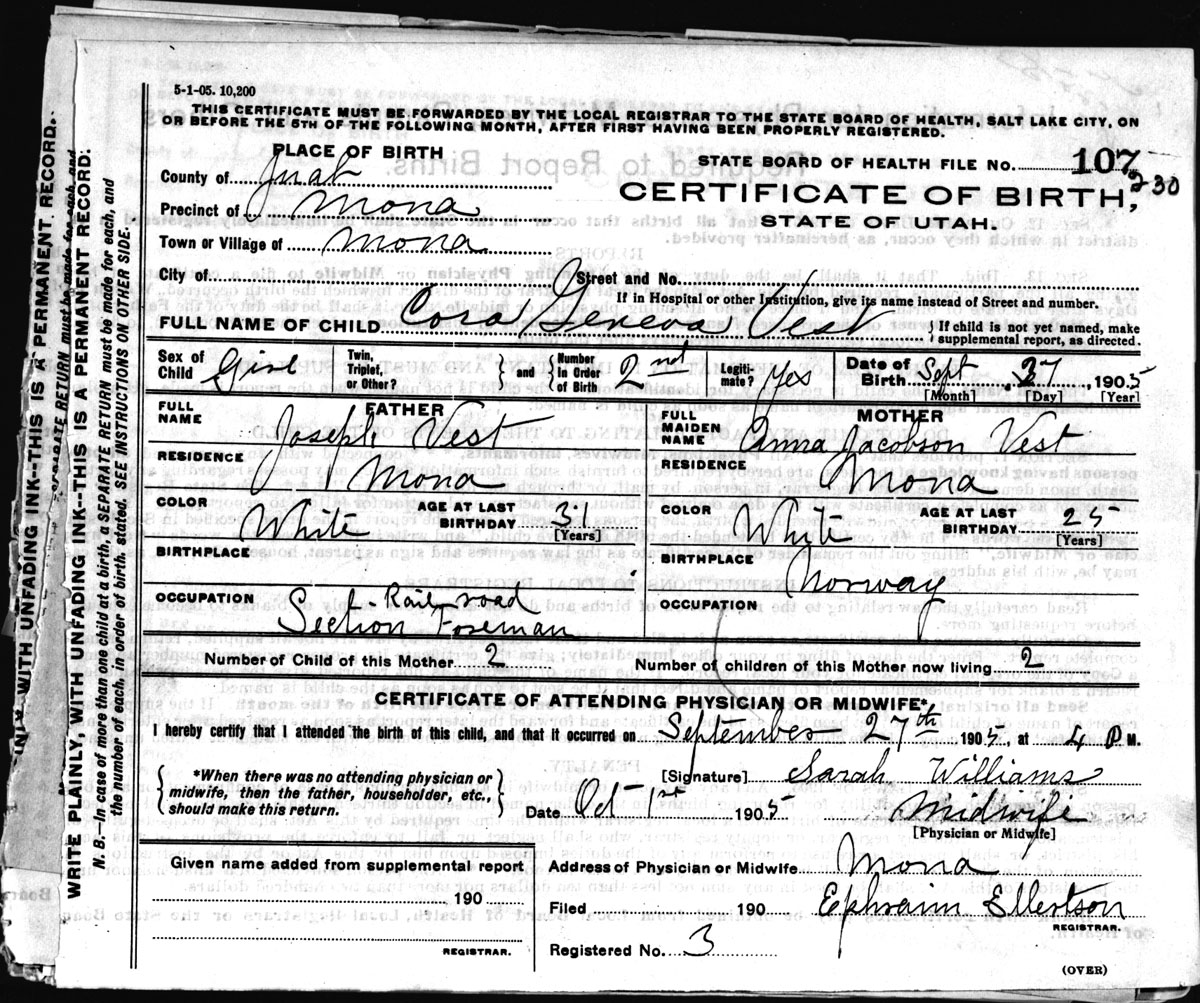 5-1-05. 10,200
THIS CERTIFICATE MUST BE FORWARDED BY THE LOCAL REGISTRAR TO THE STATE BOARD OF HEALTH, SALT LAKE CITY, ON
OR BEFORE THE 5TH OF THE FOLLOWING MONTH, AFTER FIRST HAVING BEEN PROPERLY REGISTERED.
PLACE OF BIRTH
County of Juab
Precinct of Mona
Town or Village of Mona
City of
STATE BOARD OF HEALTH FILE NO. 107
230
CERTIFICATE OF BIRTH,
STATE OF UTAH.
Street and No.
If in Hospital or other Institution, give its name instead of Street and number.
FULL NAME OF CHILD Cora Geneva Vest { If child is not yet named, make
supplemental report, as directed.
Sex of Child Girl
Twin, Triplet, or Other? } and { Number in Order of Birth 2nd
Legiti-mate? Yes
Date of Birth Sept, 27, 1905
[Month] [Day] [Year]
FATHER
FULL NAME Joseph Vest
RESIDENCE Mona
COLOR White AGE AT LAST BIRTHDAY 31
[Years]
BIRTHPLACE
OCCUPATION Section Rail road
Foreman
MOTHER
FULL MAIDEN NAME Anna Jacobson Vest
RESIDENCE Mona
COLOR White AGE AT LAST BIRTHDAY 25
[Years]
BIRTHPLACE Norway
OCCUPATION
Number of Child of this Mother 2 Number of children of this Mother now living 2
CERTIFICATE OF ATTENDING PHYSICIAN OR MIDWIFE*
I hereby certify that I attended the birth of this child, and that it occurred on September 27th 1905, at 4 P M.
{ *When there was no attending physician or
midwife, then the father, householder, etc.,
should make this return. }
[Signature] Sarah Williams
Date Oct 1st 1905 Midwife
[Physician or Midwife]
Given name added from supplemental report
190
REGISTRAR.
Address of Physician or Midwife Mona
Filed 190 Ephraim Ellertson
REGISTRAR.
Registered No. 3
(OVER)
WRITE PLAINLY, WITH UNFADING INK--THIS IS A PERMANENT RECORD.
N. B.--In case of more than one child at a birth, a SEPARATE RETURN must be made for each, and
the number of each, in order of birth, stated. SEE INSTRUCTIONS ON OTHER SIDE.
WITH UNFADING INK--THIS IS A PERMANENT RECORD.
RETURN must be made for each, and